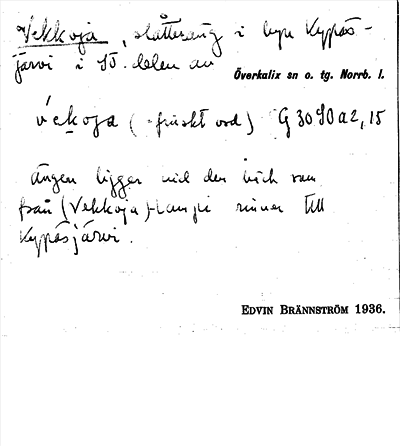 Vekkoja, slåtteräng i byn Kypäs-
järvi i SO. delen av
Överkalix sn o. tg. Norrb. l.
vékoja (-finskt ord) G 3090a2, 15
Ängen ligger vid den bäck som
från (Vekkoja)-lampi rinner till
Kypäsjärvi.
EDVIN BRÄNNSTRÖM 1936.